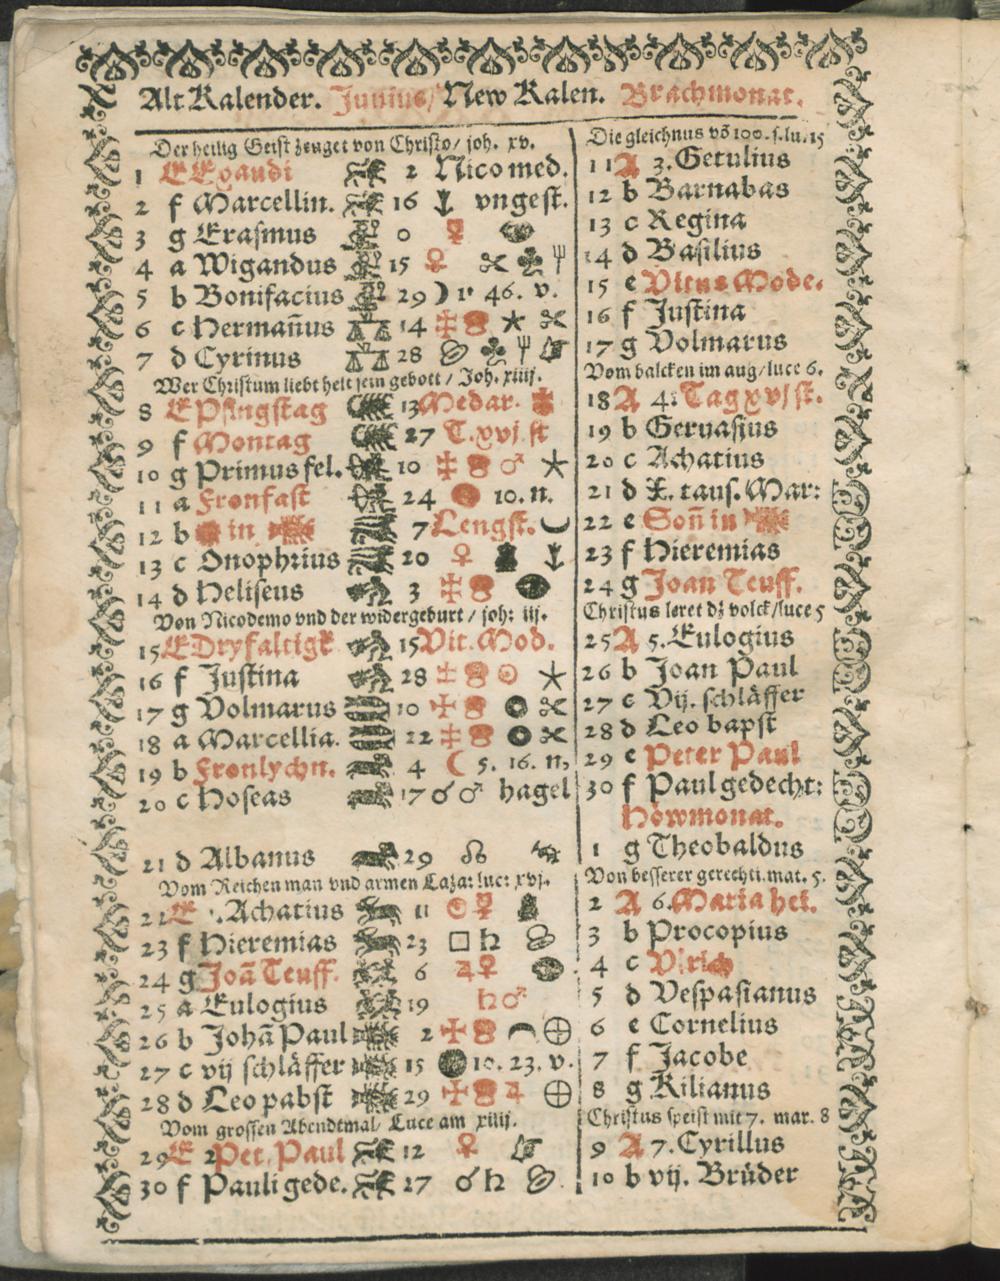 Alt Kalender. Junius/ New Kalen. Brachmonat.
Der heilig Geist zeuget von Christo/ joh. xv.
1 E Exaudi 2 Nicomed.
2 f Marcellin. 16 vngest.
3 g Erasmus 0 ☿
4 a Wigandus 15 ♀
5 b Bonifacius 29 ☽ 1 46. v.
6 c Hermañus 14
7 d Cyrinus 28
Wer Christum liebt helt sein gebott / Joh. xiiij.
8 E Pfingstag 13 Medar.
9 f Montag 27 T. xvj. st
10 g Primus fel. 10 ♂
11 a Fronfast 24 10. n.
12 b in 7 Lengst.
13 c Onophrius 20 ♀
14 d Heliseus 3
Von Nicodemo vnd der widergeburt / joh: iij.
15 E Dryfaltigk 15 Vit. Mod.
16 f Justina 28 ☉
17 g Volmarus 10
18 a Marcellia. 22
19 b Fronlychn. 4 ☾ 5. 16. n,
20 c Hoseas 17 ☌ ♂ hagel
21 d Albanus 29 ☊
Vom Reichen man vnd armen Laza: luc: xvj.
22 E Achatius 11 ☉ ☿
23 f Hieremias 23 □ ♄
24 g Joã Teuff. 6 ♃ ♀
25 a Eulogius 19 ♄ ♂
26 b Johã Paul 2
27 c vij schläffer 15 10. 23. v.
28 d Leo pabst 29 ♃
Vom grossen Abendtmal/ Luce am xiiij.
29 E 2 Pet. Paul 12 ♀
30 f Pauli gede. 27 ☌ ♄
Die gleichnus võ 100. s. lu. 15
11 A 3. Getulius
12 b Barnabas
13 c Regina
14 d Basilius
15 e Vitus Mode.
16 f Justina
17 g Volmarus
Vom balcken im aug/ luce 6.
18 A 4. Tag xvj st.
19 b Geruasius
20 c Achatius
21 d X. taus. Mar:
22 e Soñ in
23 f Hieremias
24 g Joan Teuff.
Christus leret dz volck/ luce 5
25 A 5. Eulogius
26 b Joan Paul
27 c Vij. schläffer
28 d Leo bapst
29 e Peter Paul
30 f Paul gedecht:
Höwmonat.
1 g Theobaldus
Von besserer gerechti. mat. 5.
2 A 6. Maria hei.
3 b Procopius
4 c Vlrich
5 d Vespasianus
6 e Cornelius
7 f Jacobe
8 g Kilianus
Christus speist mit 7. mar. 8
9 A 7. Cyrillus
10 b vij. Brüder